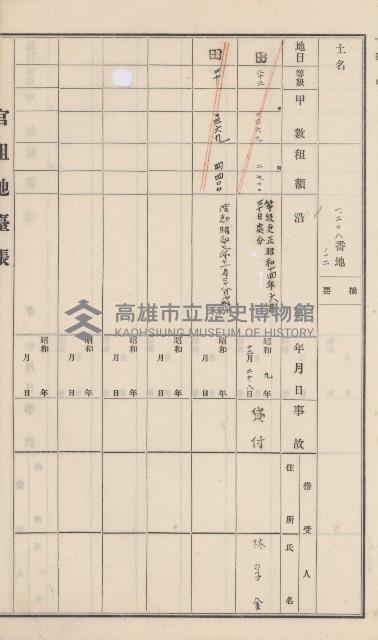 土名
一、二〇八番地
ノ二
摘要
地目
等級
甲數
租額
沿
年月日
事故
借受人
住所
氏名
田
二十二
二、七〇〇
等級更正昭和十四年六月
三十日處分
昭和九年
十二月二十八日
貸付
林
金
田
四四〇〇
昭和 年
月 日
昭和 年
月 日
昭和 年
月 日
昭和 年
月 日
昭和 年
月 日
官租地臺帳
高雄市立歷史博物館
KAOHSIUNG MUSEUM OF HISTORY